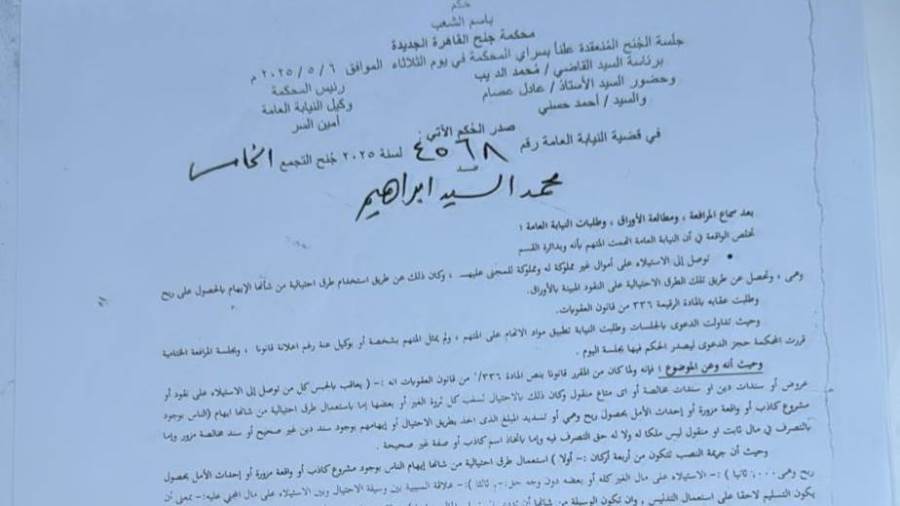 حكم
باسم الشعب
محكمة جنح القاهرة الجديدة
جلسة الجنح المنعقدة علناً بسراي المحكمة في يوم الثلاثاء الموافق ٦ / ٥ / ٢٠٢٥ م
برئاسة السيد القاضي / محمد الديب رئيس المحكمة
وحضور السيد الأستاذ / عادل عصام وكيل النيابة العامة
والسيد / أحمد حسني أمين السر
صدر الحكم الآتي
في قضية النيابة العامة رقم ٤٥٦٨ لسنة ٢٠٢٥ جنح التجمع الخامس
ضد
محمد السيد ابراهيم
بعد سماع المرافعة ، ومطالعة الأوراق ، وطلبات النيابة العامة :
تخلص الواقعة في أن النيابة العامة اتهمت المتهم بأنه وبدائرة القسم
• توصل إلى الاستيلاء على أموال غير مملوكة له ومملوكة للمجنى عليه ، وكان ذلك عن طريق استخدام طرق احتيالية من شأنها الإيهام بالحصول على ربح
وهمى ، وتحصل عن طريق تلك الطرق الاحتيالية على النقود المبينة بالأوراق.
وطلبت عقابه بالمادة الرقيمة ٣٣٦ من قانون العقوبات.
وحيث تداولت الدعوى بالجلسات وطلبت النيابة تطبيق مواد الاتهام على المتهم ، ولم يمثل المتهم بشخصة أو بوكيل عنة رغم اعلانة قانونا ، وبجلسة المرافعة الختامية
قررت المحكمة حجز الدعوى ليصدر الحكم فيها بجلسة اليوم .
وحيث أنه وعن الموضوع : فإنه ولما كان من المقرر قانونا بنص المادة ٣٣٦/١ من قانون العقوبات انه :- ( يعاقب بالحبس كل من توصل إلى الاستيلاء على نقود أو
عروض أو سندات دين او سندات مخالصة أو اى متاع منقول وكان ذلك بالاحتيال لسلب كل ثروة الغير أو بعضها إما باستعمال طرق احتيالية من شانها ايهام الناس بوجود
مشروع كاذب أو واقعة مزورة أو إحداث الأمل بحصول ربح وهمي أو تسديد المبلغ الذى اخذ بطريق الاحتيال أو إيهامهم بوجود سند دين غير صحيح أو سند مخالصة مزور وإما
بالتصرف في مال ثابت او منقول ليس ملكا له ولا له حق التصرف فيه وإما باتخاذ اسم كاذب أو صفة غير صحيحة .
وحيث أن جريمة النصب تتكون من أربعة أركان :- أولا ) استعمال طرق احتيالية من شانها إيهام الناس بوجود مشروع كاذب أو واقعة مزورة أو إحداث الأمل بحصول
ربح وهمى .... ثانيا ) :- الاستيلاء على مال الغير كله أو بعضه دون وجه حق :-, ثالثا ) :- علاقة السببية بين وسيلة الاحتيال وبين الاستيلاء على مال المجني عليه :- بمعنى أن
يكون التسليم لاحقا على استعمال التدليس , وان تكون الوسيلة من شانها أن